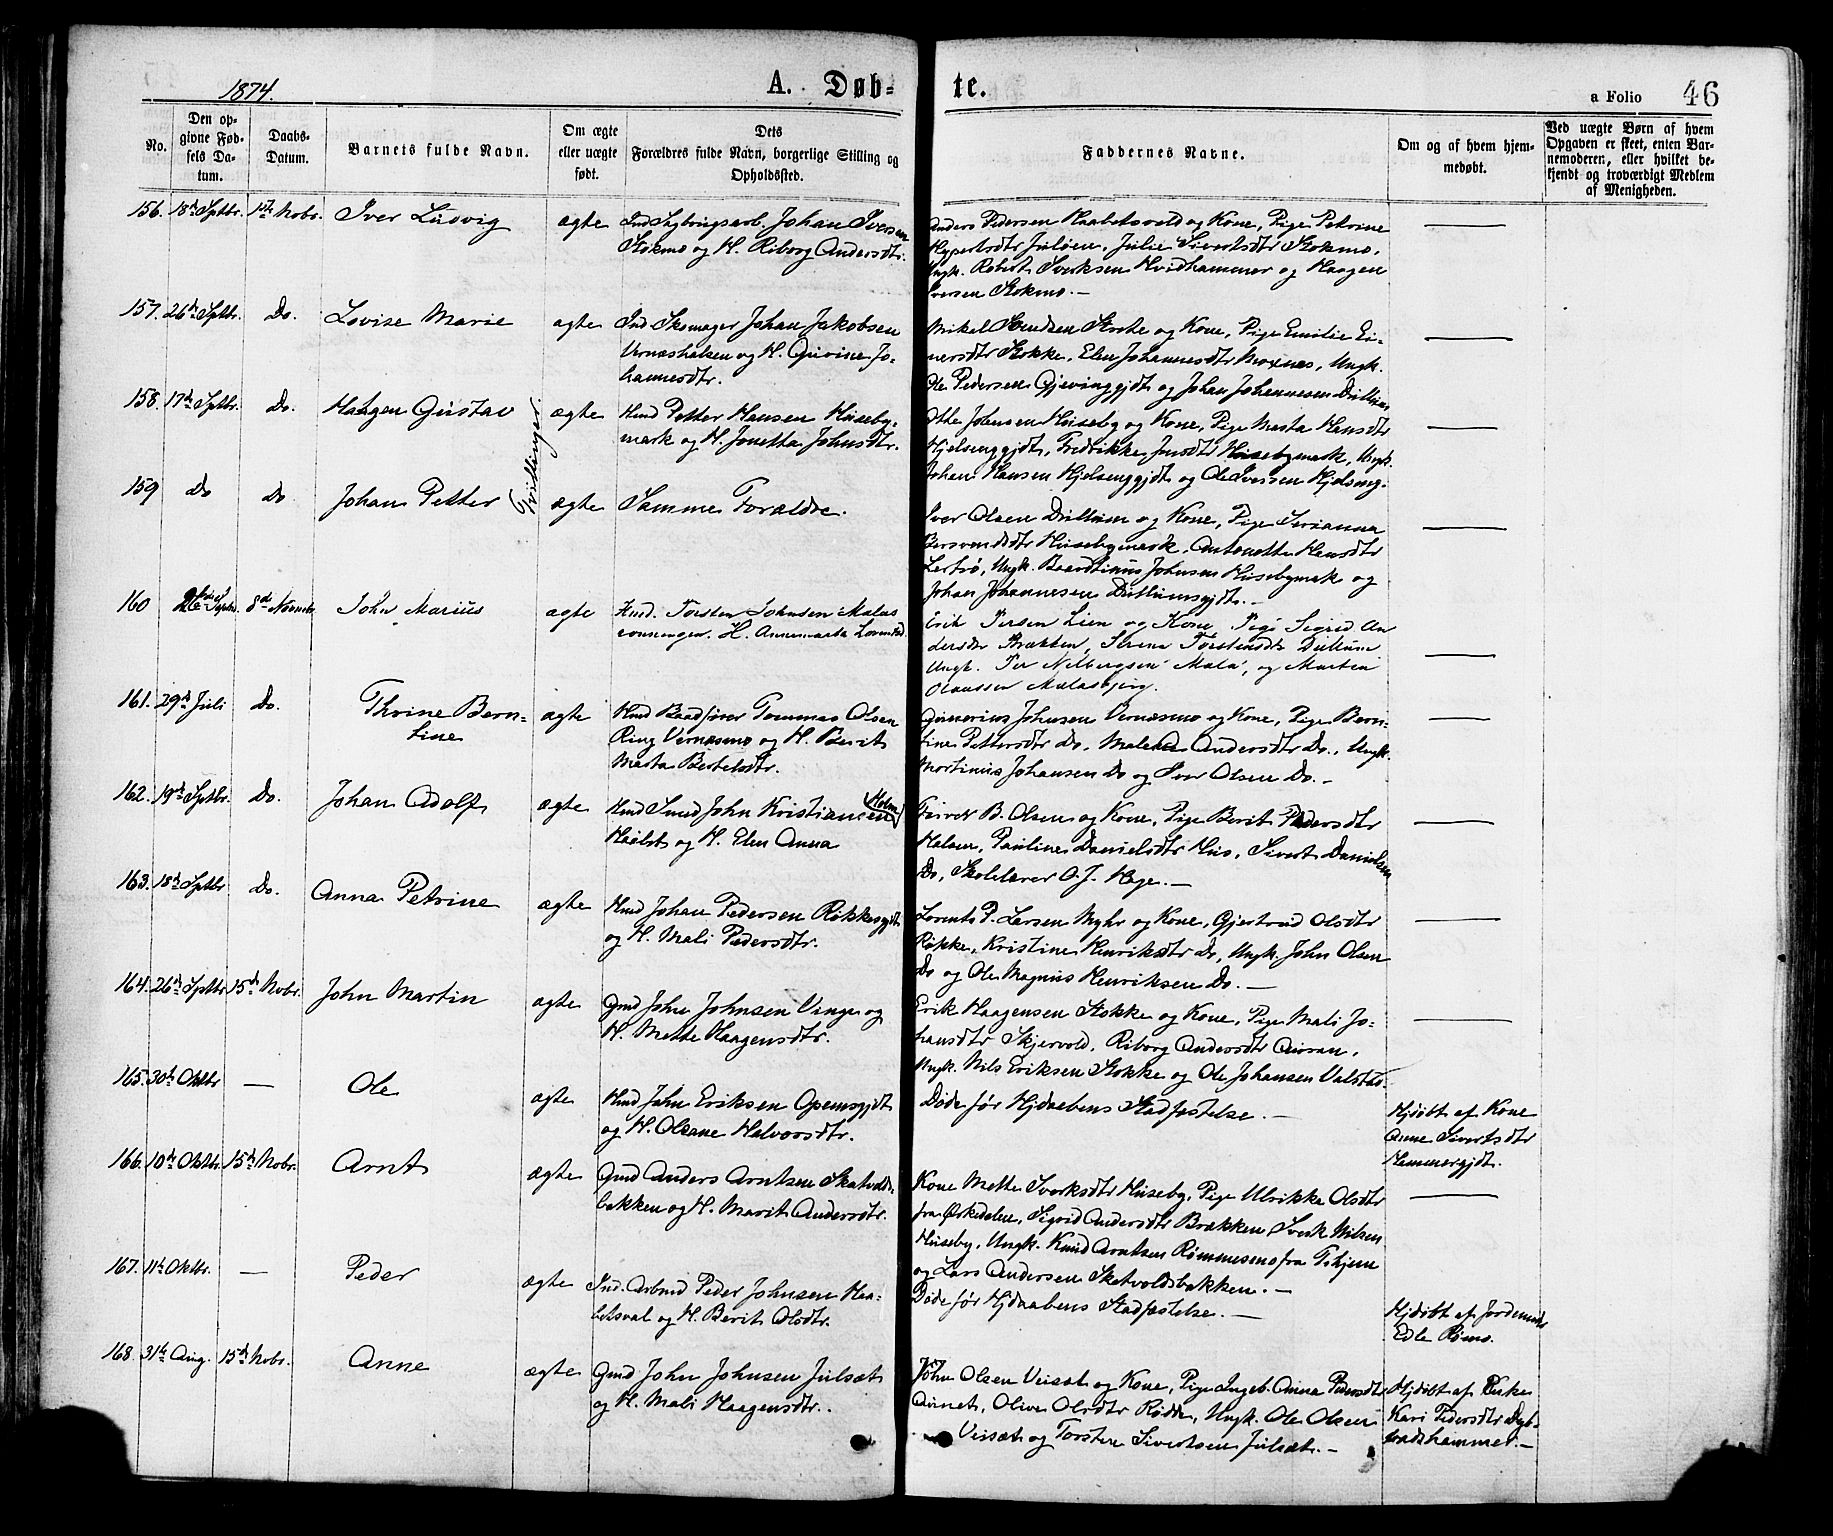 1874.
A. Døb-
te.
a Folio 46
No.
Den op-
givne Fød-
sels Da-
tum.
Daabs-
Datum.
Barnets fulde Navn.
Om ægte
eller uægte
født.
Dets
Forældres fulde Navn, borgerlige Stilling og
Opholdssted.
Faddernes Navne.
Om og af hvem hjem-
medøbt.
Ved uægte Børn af hvem
Opgaven er skeet, enten Bar-
nemoderen, eller hvilket be-
kjendt og troværdigt Medlem
af Menigheden.
156. 18de Septbr. 1ste Nobr. Iver Ludvig ægte Johan Iversen
Stokmo og H. Riborg Andersdtr.
Anders Pedersen Haabetsvold og Kone, Pige Petrine
Julie Sivertsdtr Stokmo,
Ungk. Robert Hvidhammer og Haagen
Iversen Stokmo. —
157. 26de Septbr. Do. Lovise Marie ægte Ind. Skomager Johan Jakobsen
Vernæshalsen og H. Gurine Jo-
hannesdtr.
Mikal Svendsen og Kone, Pige Emilie Ei-
nersdtr Stokke, Elen Johannesdtr Moxnes, Ungk.
Ole Pedersen og Johan Johannesen
158. 17de Septbr. Do. Haagen Gustav Tvillinger ægte Hmd Petter Hansen Huseby-
mark og H. Jonetta Johnsdtr.
Johnsen Huseby og Kone, Pige Marta Hansdtr
Fredrikke Husebymark, Ungk.
Johan Hansen og Ole Iversen
159 Do Do Johan Petter ægte Samme Forældre.
Iver Olsen og Kone, Pige
Husebymark, Antonette Hansdtr
Ungk. Johnsen Husebymark og
Johan Johannesen
160 8de Novembr. John Marius ægte Hmd. Torsten Johnsen
H. Annemarta
Erik Persen Lien og Kone, Pige Sigrid An-
dersdtr Brækken, Torstensdtr
Ungk. Per og Martin
Olaussen
161. 29de Juli Do. Thrine Bern-
tine ægte Hmd Baadfører Tommas Olsen
Ring Vernæsmo og H. Berit
Marta Bertelsdtr.
Gunerius Johnsen Vernæsmo og Kone, Pige Bern-
tine Pettersdtr Do. Andersdtr Do., Ungk.
Martinus Johansen Do og Iver Olsen Do. —
162. 19de Septbr. Do. Johan Adolf ægte Hmd Smed John Kristiansen Holm
og H. Elen Anna
B. Olsen og Kone, Pige Berit Pedersdtr
Halsen, Pauline Danielsdtr Hus, Sivert Danielsen
Do, Skolelærer O. J. Hage. —
163. 18de Septbr Do. Anna Petrine ægte Hmd Johan Pedersen Røkkesgjdt
og H. Mali Pedersdtr.
Lorents P. Larsen Myhr og Kone, Gjertrud Olsdtr
Røkke, Kristine Henriksdtr Do, Ungk. John Olsen
Do og Ole Magnus Henriksen Do. —
164. 26de Septbr 15de Nobr. John Martin ægte Gmd John Johnsen Vinge og
H. Mette Haagensdtr.
Erik Haagensen Stokke og Kone, Pige Mali Jo-
hansdtr Skjervold, Riborg Andersdtr Auran,
Ungk. Nils Eriksen Stokke og Ole Johansen
165. 30te Oktbr — Ole ægte Hmd John Eriksen
og H. Oleane Halvorsdtr.
Døde før Hjdaabens Stadfæstelse. —
Hjdøbt af Kone
Anne Sivertsdtr
Hammergjdt.
166. 10de Oktbr. 15de Nobr. Arnt ægte Gmd Anders Arntsen Skatvolds-
bakken og H. Marit Andersdtr.
Kone Mette Huseby, Pige Ulrikke Olsdtr
fra Ørkedalen, Sigrid Andersdtr Brækken, Nilsen
Huseby, Ungk. Knud Arntsen Rømmesmo fra
og Lars Andersen Skatvoldsbakken. —
167. 11te Oktbr. — Peder ægte Ind. Arbmd Peder Johnsen Haa-
betsval og H. Berit Olsdtr.
Døde før Hjdaabens Stadfæstelse. —
Hjdøbt af Jordemoder
Edle Rømo.
168. 31te Aug. 15de Nobr. Anne ægte Gmd John Johnsen Julsæt
og H. Mali Haagensdtr.
John Olsen Veisæt og Kone, Pige Ingeb. Anna Pedersdtr
Olsdtr Rødde, Ungk. Ole Olsen
Veisæt og Torsten Sivertsen Julsæt. —
Hjdøbt af
Kari Pedersdtr Dyb-
vadshammer. —